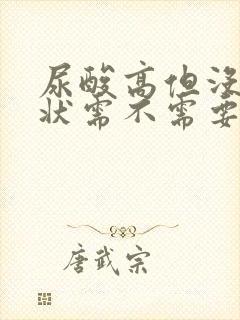 尿酸高但没
状需不需要
唐武宗